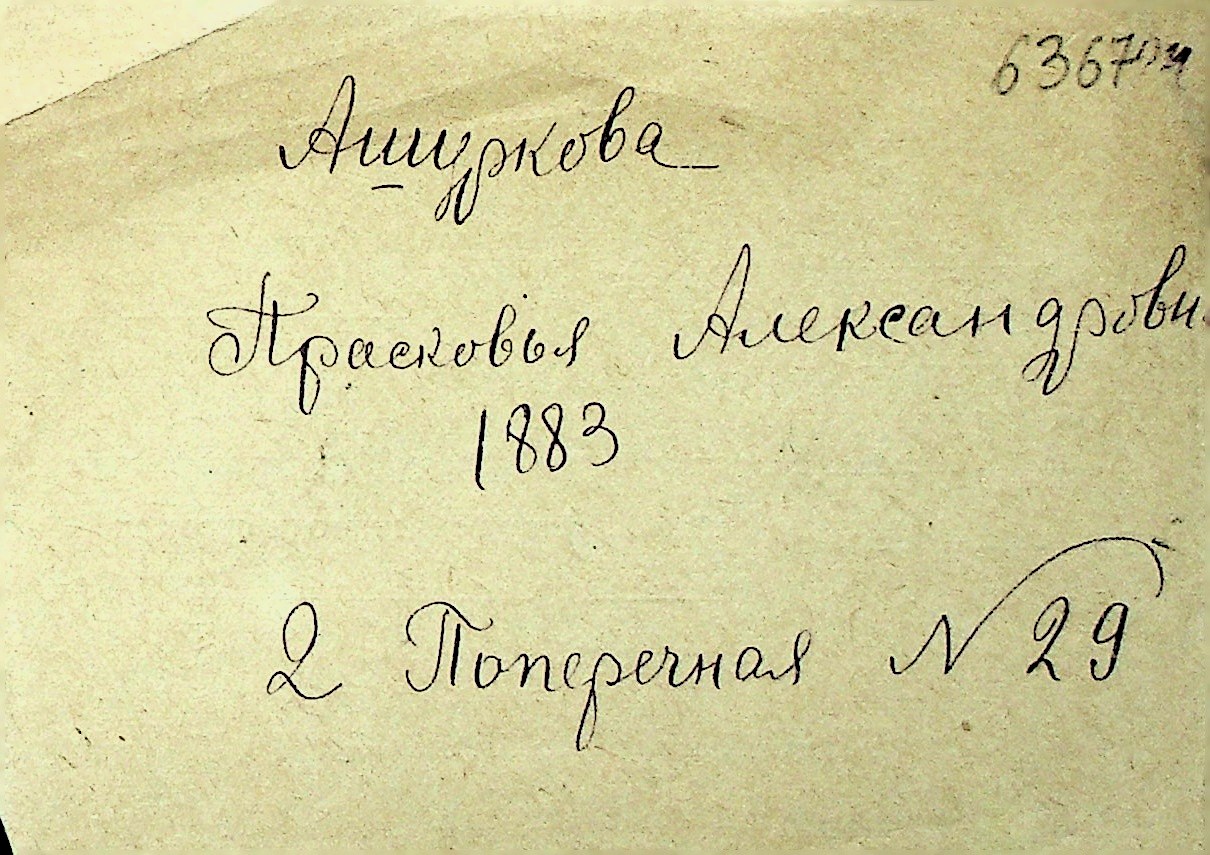 6367
Ашуркова
Прасковья Александровн
1883
2 Поперечная N 29